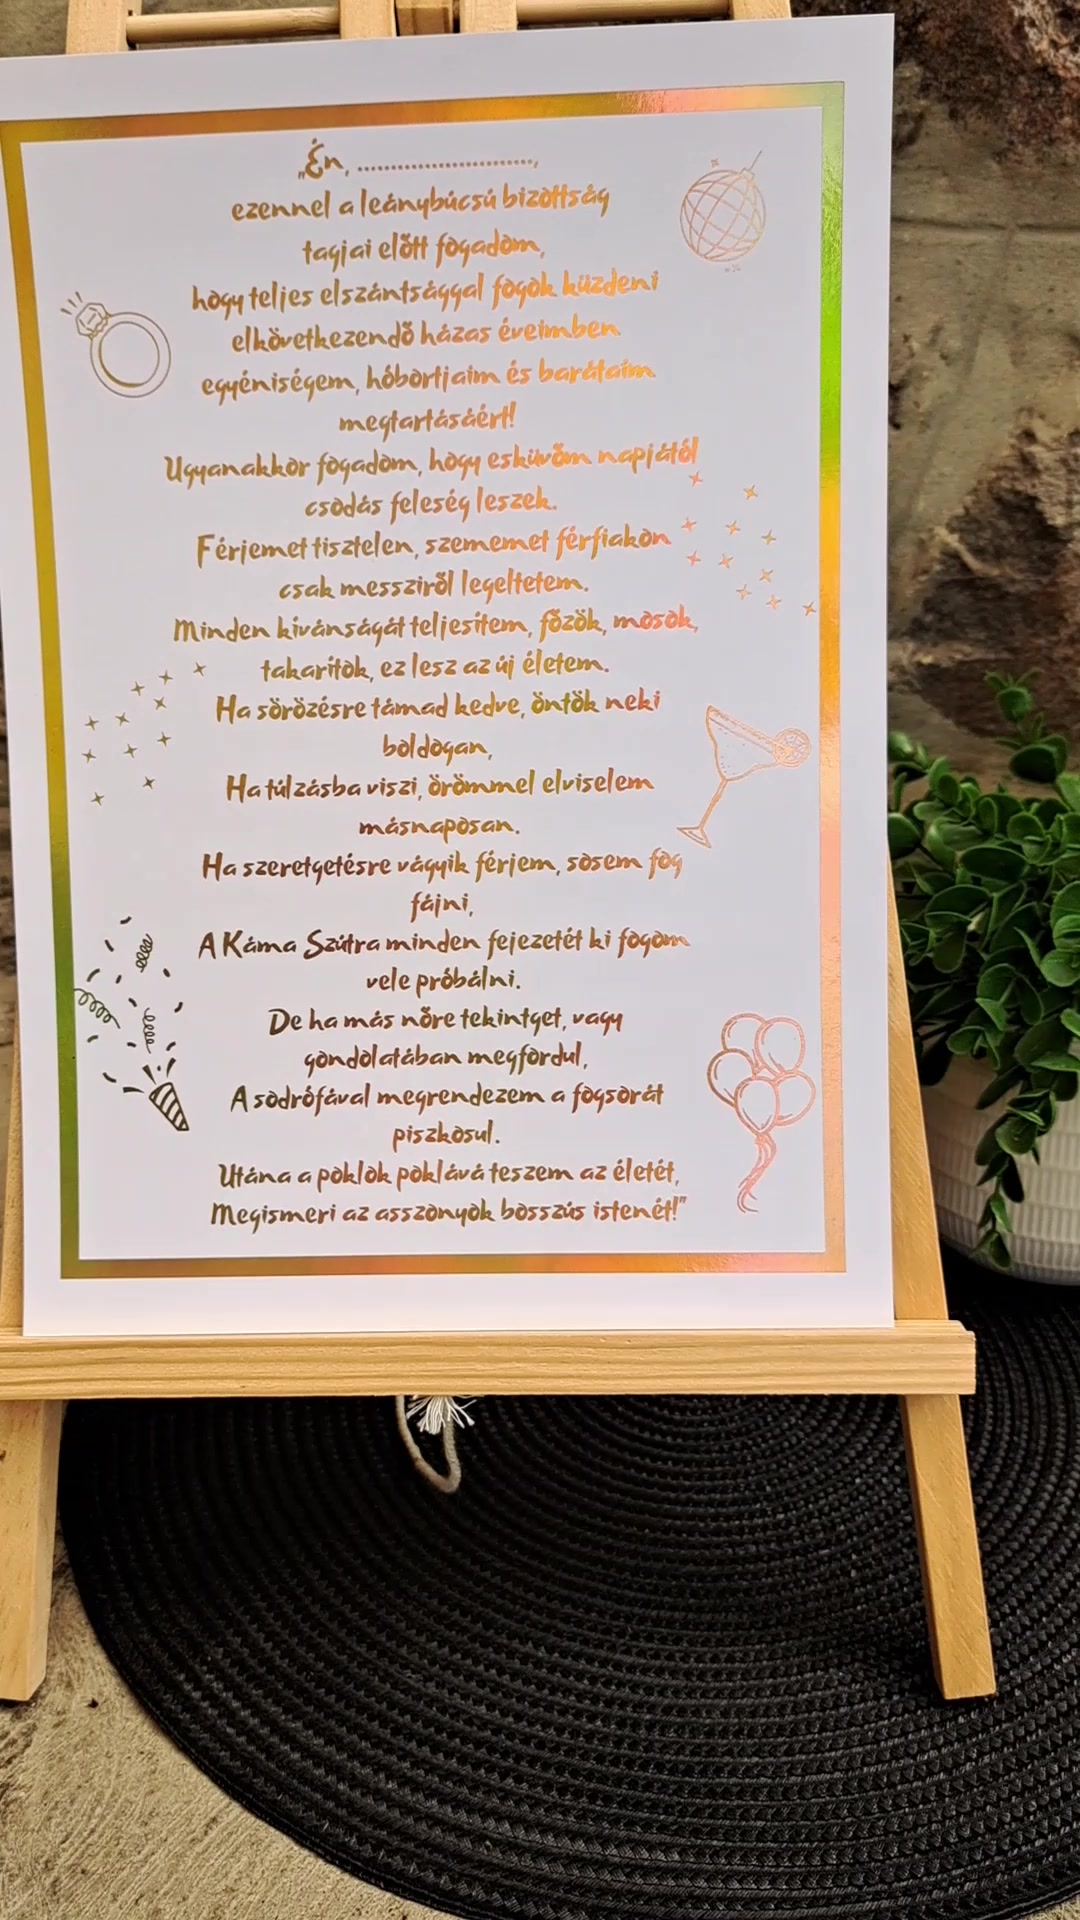 „Én, ............................,
ezennel a leánybúcsú bizottság
tagjai előtt fogadom,
hogy teljes elszántsággal fogok küzdeni
elkövetkezendő házas éveimben
egyéniségem, hóbortjaim és barátaim
megtartásáért!
Ugyanakkor fogadom, hogy esküvőm napjától
csodás feleség leszek.
Férjemet tisztelen, szememet férfiakon
csak messziről legeltetem.
Minden kívánságát teljesítem, főzök, mosok,
takarítok, ez lesz az új életem.
Ha sörözésre támad kedve, öntök neki
boldogan,
Ha túlzásba viszi, örömmel elviselem
másnaposan.
Ha szeretgetésre vágyik férjem, sosem fog
fájni,
A Káma Szútra minden fejezetét ki fogom
vele próbálni.
De ha más nőre tekintget, vagy
gondolatában megfordul,
A sodrófával megrendezem a fogsorát
piszkosul.
Utána a poklok poklává teszem az életét,
Megismeri az asszonyok bosszús istenét!"